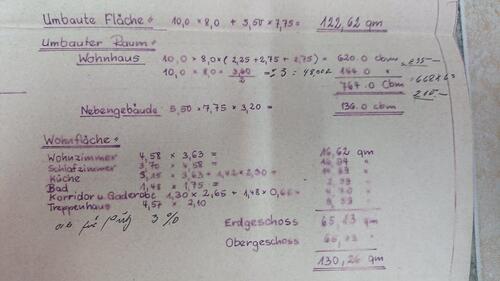 Umbaute Fläche: 10,0 × 8,0 + 5,50 × 7,75 = 122,62 qm
Umbauter Raum:
Wohnhaus 10,0 × 8,0 × ( 2,25 + 2,75 + 2,75 ) = 620.0 cbm
10,0 × 8,0 × 3,60 / 2 = : 3 =
764.0 cbm
Nebengebäude 5,50 × 7,75 × 3,20 = 136.0 cbm
Wohnfläche:
Wohnzimmer 4,58 × 3,63 = 16,62 qm
Schlafzimmer 3,70 × 4,58 =
Küche 3,63 + 1,42 × 2,30 =
Bad 1,48 × 1,75 =
Korridor u. Gaderobe 1,30 × 2,65 + 1,48 × 0,66 =
Treppenhaus 4,57 × 2,10
ab für Putz 3 %
Erdgeschoss 65,13 qm
Obergeschoss 65,13 "
130,26 qm